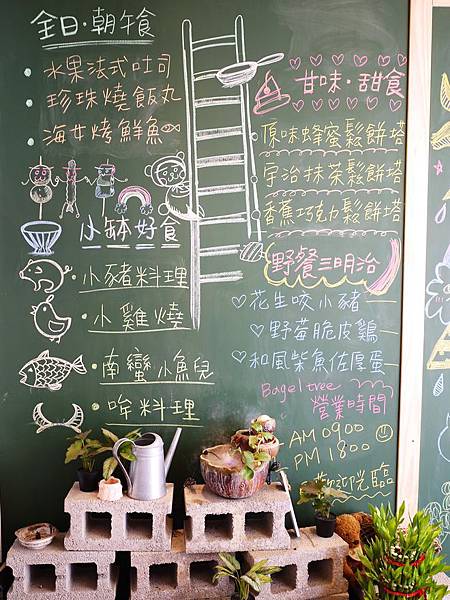 全日·朝午食
·水果法式吐司
·珍珠燒飯丸
海女烤鮮魚
小缽好食
·小豬料理
·小雞燒
·南蠻小魚兒
·哞料理
甘味·甜食
原味蜂蜜鬆餅塔
宇治抹茶鬆餅塔
香蕉巧克力鬆餅塔
野餐三明治
♡花生咬小豬
♡野莓脆皮雞
♡和風柴魚佐厚蛋
Bagel tree
營業時間
AM 0900
PM 1800
歡迎光臨